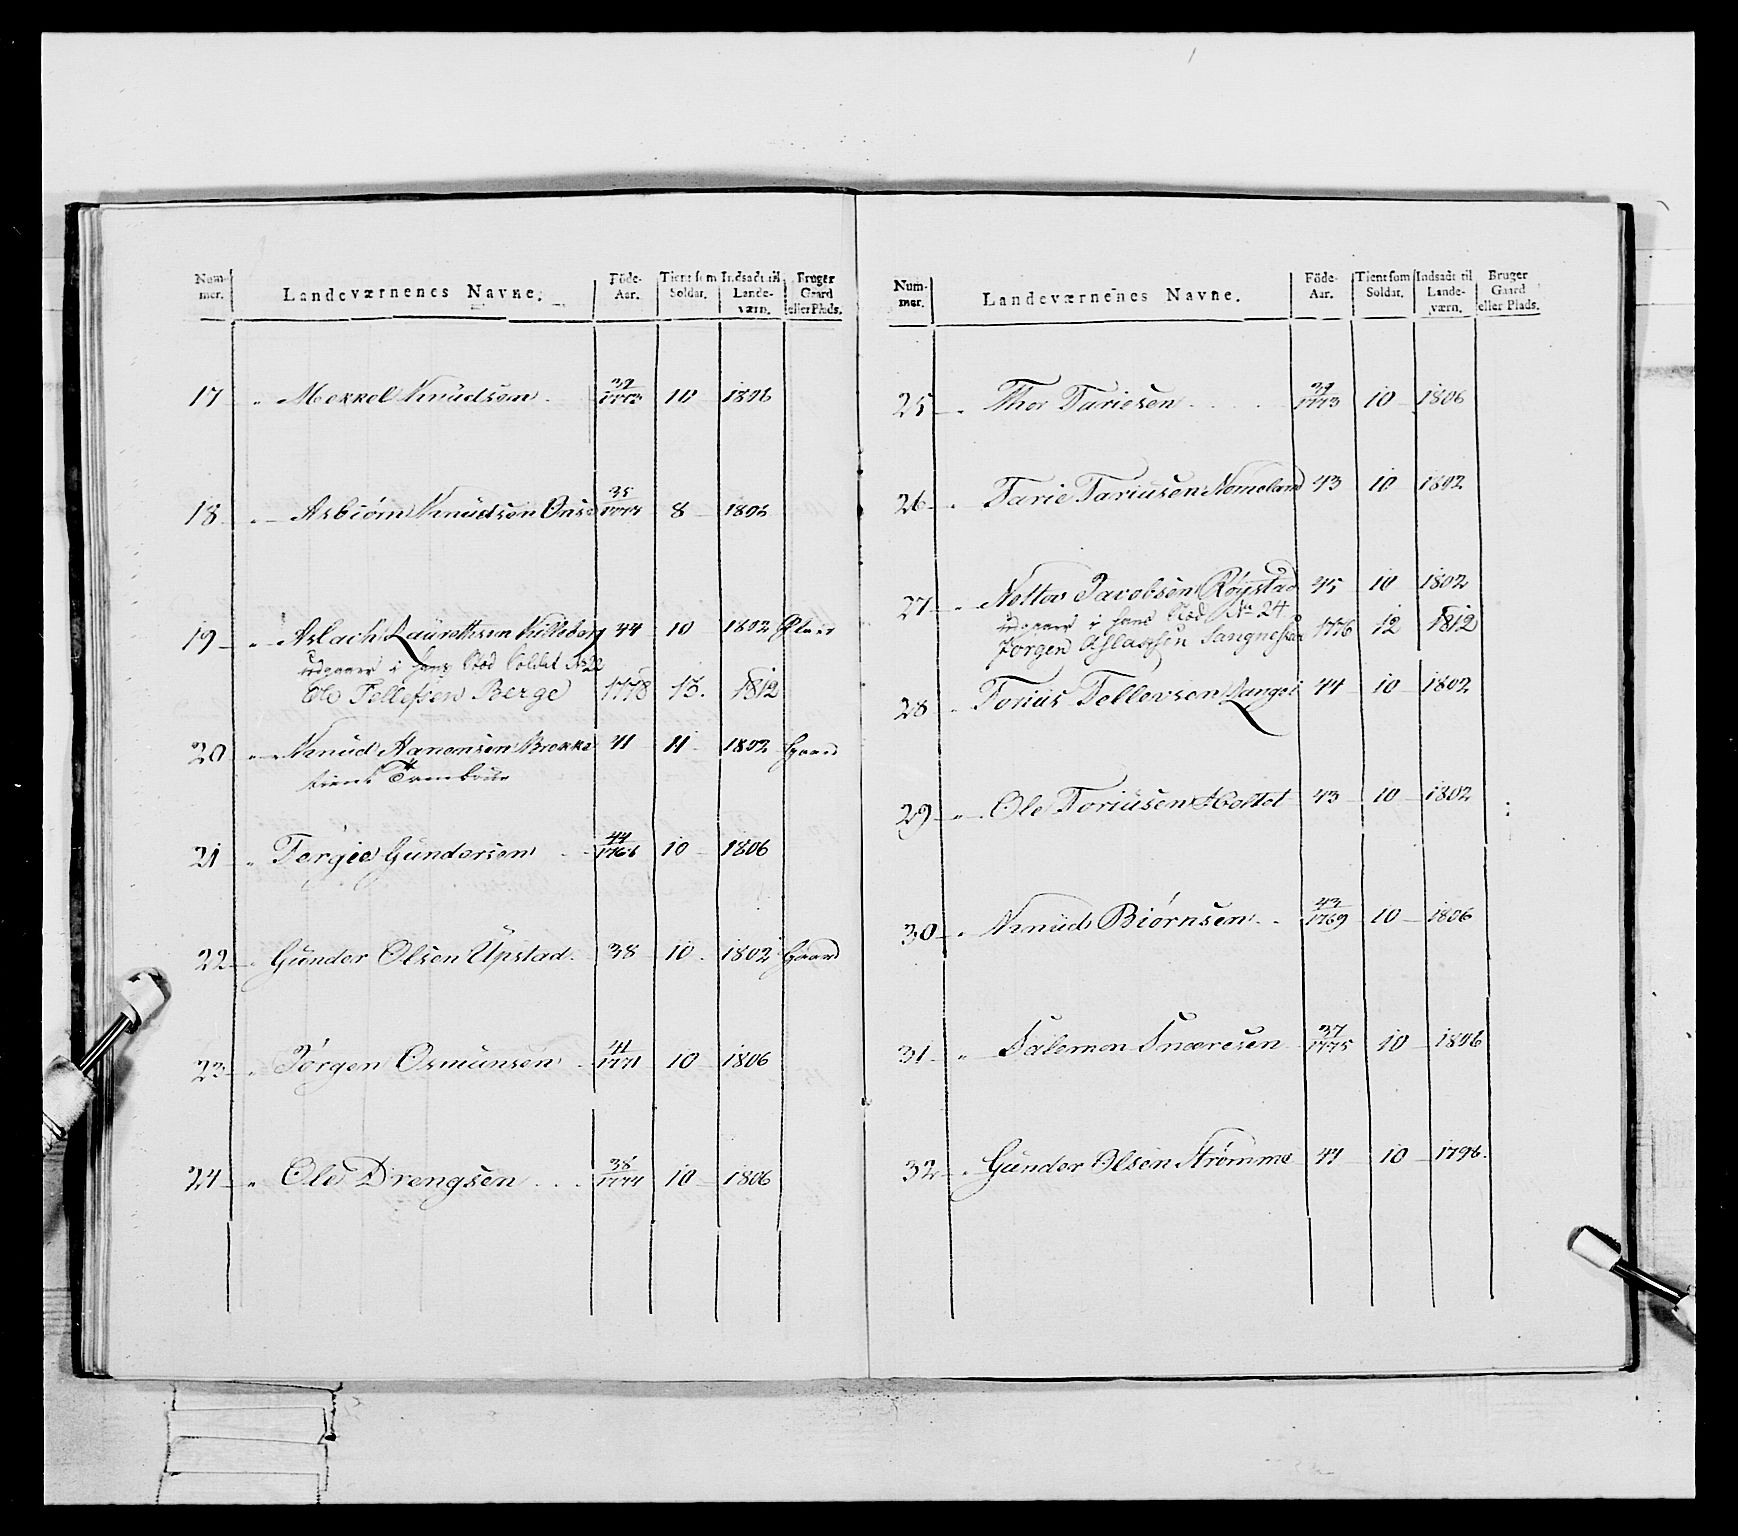 Num- mer. Landeværnenes Navne. Föde- Aar. Tient som Soldat. Indsadt til Lande- værn. Bruger Gaard eller Plads.
17 " Mekkel Knudsen 39/1773 10 1806
18 " Asbiörn Knudsen 35 8 1806
19 " Aslach Laurithsen 44 10 1802 Plads
udgaaer i hans Stød Soldat No 22
Ole Tellefsen Berge 1778 13. 1812
20 " Knud Hanensen Brokke 41 11 1802 Gaard
21 " Tergie Gundersen 44/1768 10 1806
22 " Gunder Olsen Upstad 38 10 1802 Gaard
23 " Jörgen Osmunsen 41/1771 10 1806
24 " Ole Drengsen 38/1774 10 1806
Num- mer. Landeværnenes Navne. Föde- Aar. Tient som Soldat. Indsadt til Lande- værn. Bruger Gaard eller Plads.
25 " Thor Tariesen 39/1773 10 1806
26 " Tarie Tariusen Nomeland 43 10 1802
27 " Nottov Jacobsen Röystad 45 10 1802
udgaaer i hans Stød No 24
Jörgen Aslaksen 1776 12 1812
28 " Torius Tellevsen Langei 44 10 1802
29 " Ole Toriusen Holtet 43 10 1802
30 " Knud Biörnsen 43/1769 10 1806
31 " Salomon Snaresen 37/1775 10 1806
32 " Gunder Olsen Strömme 47 10 1796.